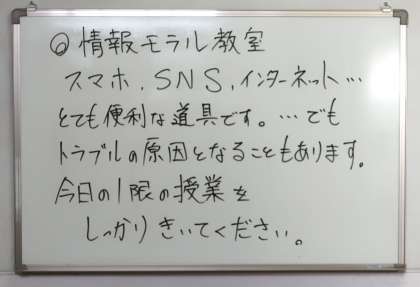 ◎情報モラル教室
スマホ、SNS、インターネット…
とても便利な道具です。…でも
トラブルの原因となることもあります。
今日の1限の授業を
しっかりきいてください。